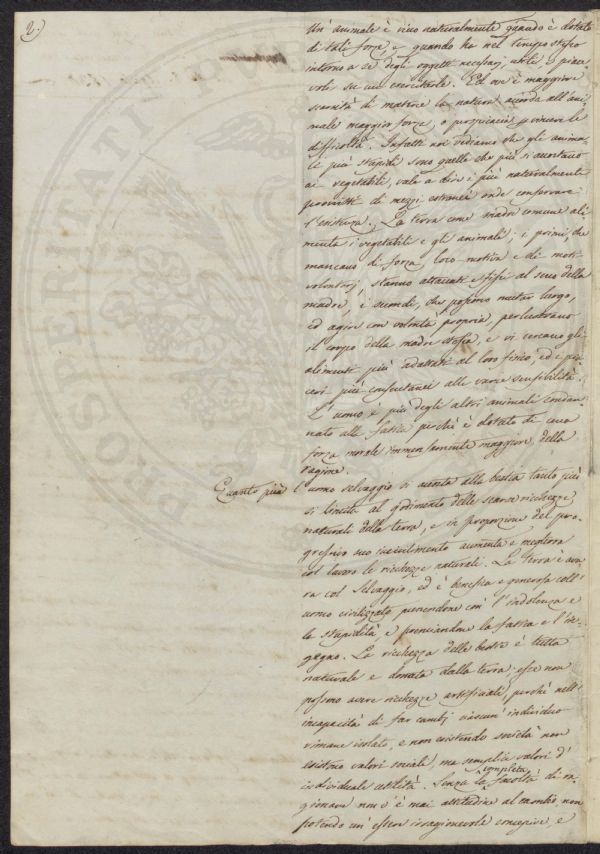 2.
Un' animale è vivo naturalmente quando è dotato
di tali forze, e quando ha nel tempo stesso
intorno a sè degli oggetti necessarj utili, o piace
voli su cui esercitarle. Ed ove è maggiore
scarsità di materie la natura accorda all'ani
male maggior forza, o perspicacia p vincere le
difficoltà. Infatti noi vediamo che gli anima
li più stupidi sono quelli che più si accostano
ai vegetabili, vale a dire i più naturalmente
provvisti di mezzi estranei onde conservare
l'esistenza. La terra come madre comune ali
menta i vegetabili e gli animali; i primi, che
mancano di forza loco-motiva e di moti
volontarj, stanno attaccati e fissi al seno della
madre, i secondi, che possono mutar luogo,
ed agire con volontà propria, perlustrano
il corpo della madre stessa, e vi cercano gli
alimenti più adattati al loro fisico, ed i pia
ceri più consentanei alle varie sensibilità.
L'uomo è più degli altri animali condan
nato alla fatica perchè è dotato di una
forza morale immensamente maggiore, della
ragione.
Quanto più l'uomo selvaggio si accosta alla bestia tanto più
si limita al godimento delle scarse ricchezze
naturali della terra, e in proporzione del pro
gressivo suo incivilimento aumenta e migliora
col lavoro le ricchezze naturali. La terra è ava
ra col Selvaggio, ed è benefica e generosa coll'
uomo civilizzato punendone così l'indolenza e
la stupidità e premiandone la fatica e l'in
gegno. La ricchezza delle bestie è tutta
naturale e donata dalla terra; esse non
possono avere ricchezze artificiali, perchè nell'
incapacità di far cambj ciascun'individuo
rimane isolato, e non esistendo società non
esistono valori sociali, ma semplici valori d'
individuale utilità. Senza la completa facoltà di ra
gionare non v'è mai attitudine al cambio, non
potendo un' essere irragionevole concepire, e